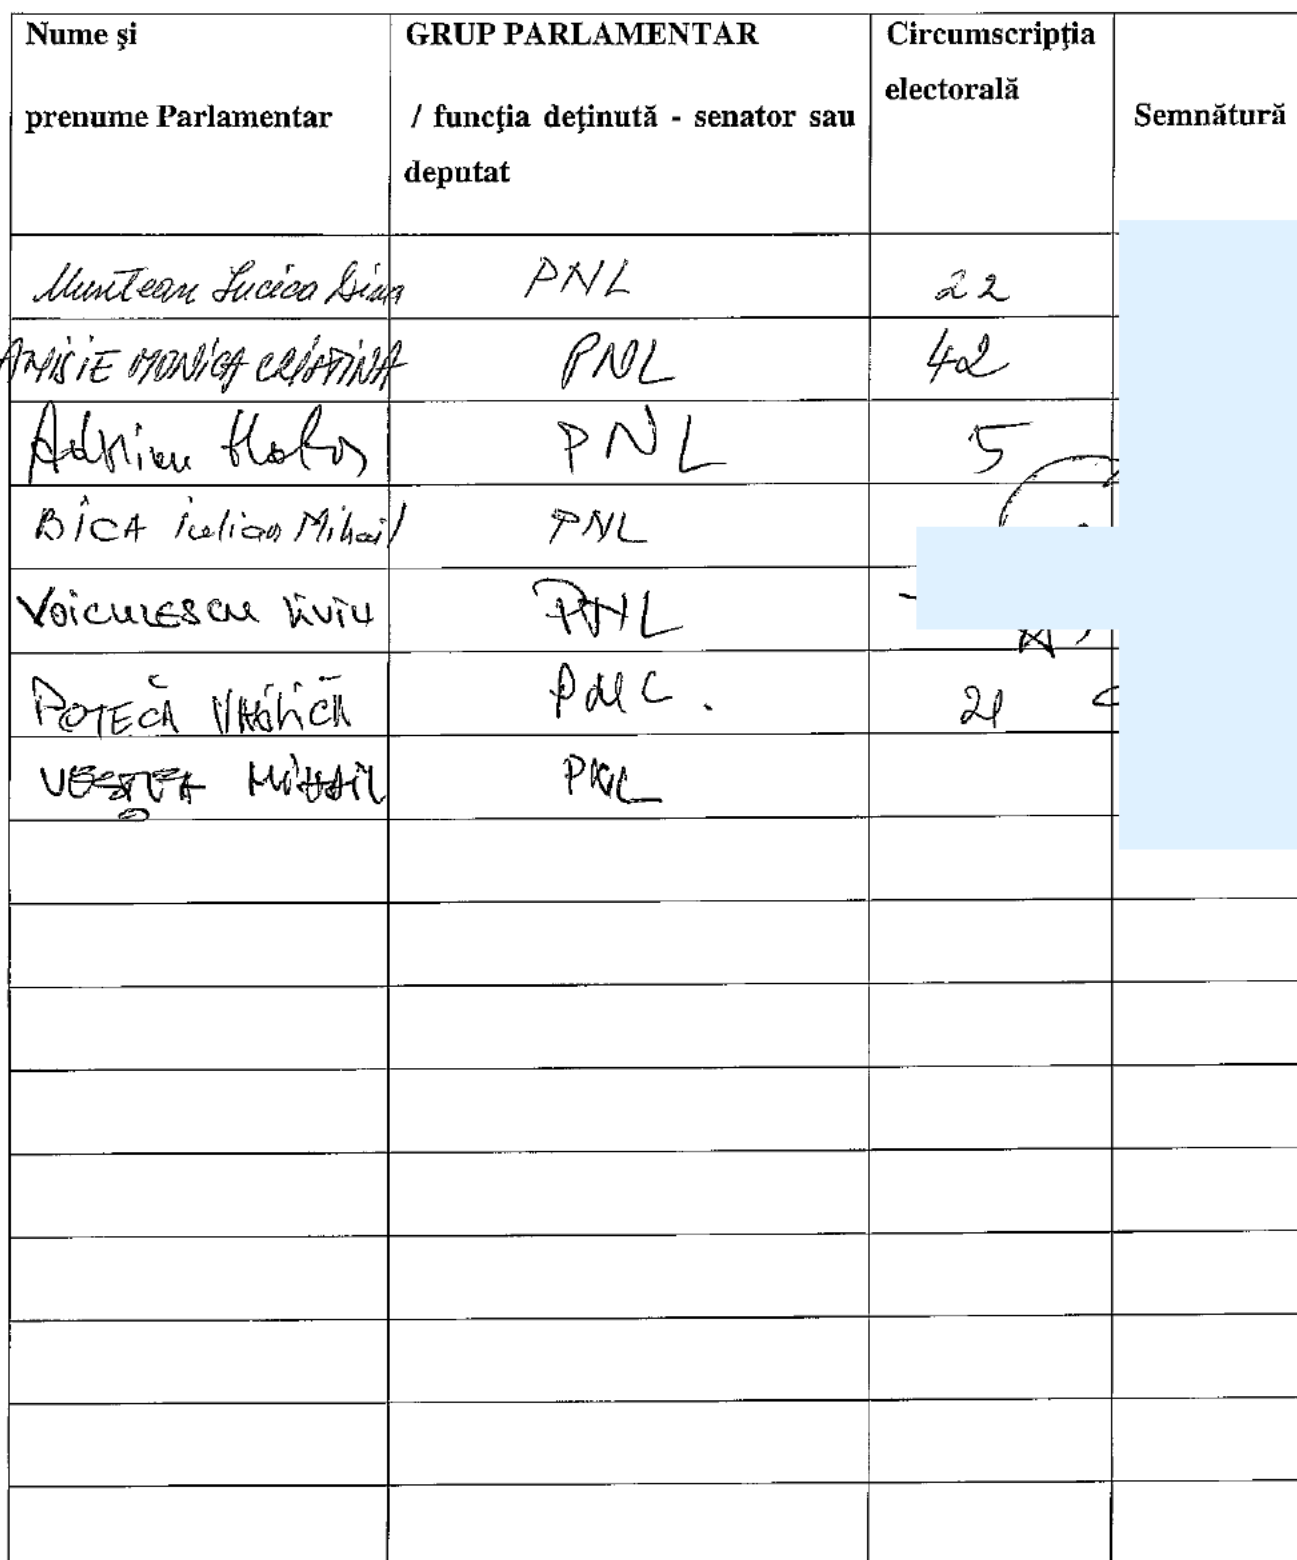 Nume şi
prenume Parlamentar
GRUP PARLAMENTAR
/ funcţia deţinută - senator sau
deputat
Circumscripţia
electorală
Semnătură
Muntean Lucica Dina PNL 22
ANISIE MONICA CRISTINA PNL 42
Adrian Hatos PNL 5
BÎCA Iulian Mihail PNL
VOICULESCU LIVIU PNL
POTECĂ VASILICĂ PNL. 21
VEŞTEA MIHAIL PNL